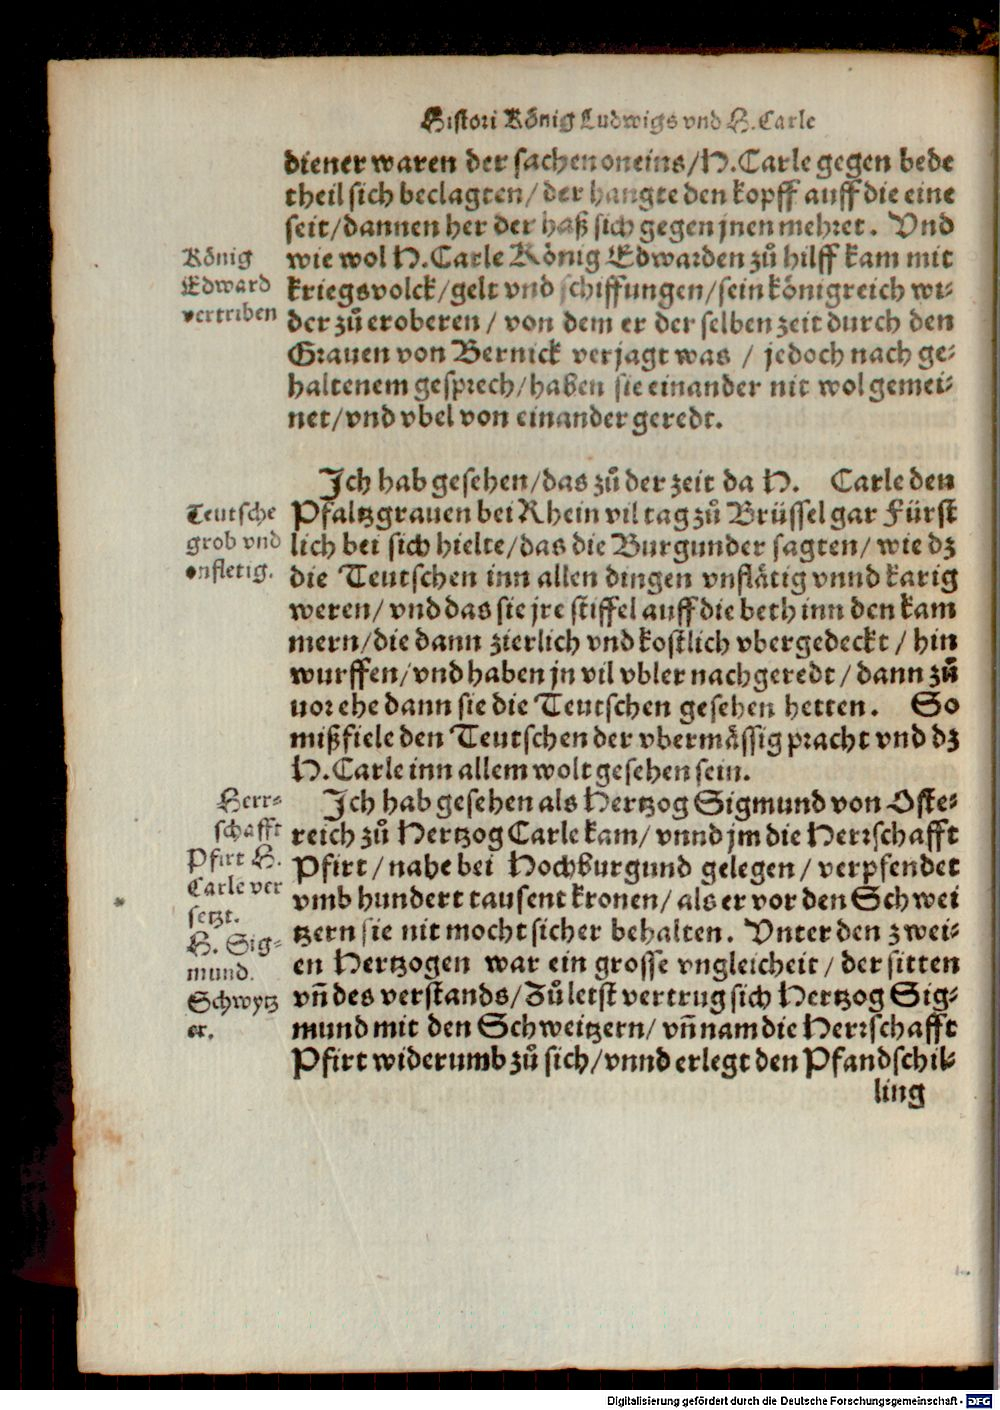 Histori König Ludwigs vnd H. Carle
diener waren der sachen oneins/H. Carle gegen bede
theil sich beclagten/ der hangte den kopff auff die eine
seit/dannen her der haß sich gegen jnen mehret. Vnd
wie wol H. Carle König Edwarden zů hilff kam mit
kriegsvolck/gelt vnd schiffungen/sein königreich wi-
der zů eroberen/ von dem er der selben zeit durch den
Grauen von Bernick verjagt was / jedoch nach ge-
haltenem gesprech/haben sie einander nit wol gemei-
net/vnd vbel von einander geredt.
König
Edward
vertriben
Ich hab gesehen/das zů der zeit da H. Carle den
Pfaltzgrauen bei Rhein vil tag zů Brüssel gar Fürst
lich bei sich hielte/das die Burgunder sagten/ wie dz
die Teutschen inn allen dingen vnflätig vnnd karig
weren/ vnd das sie jre stiffel auff die beth inn den kam
mern/die dann zierlich vnd kostlich vbergedeckt / hin
wurffen/vnd haben jn vil vbler nachgeredt/dann zů
uor ehe dann sie die Teutschen gesehen hetten. So
mißfiele den Teutschen der vbermässig pracht vnd dz
H. Carle inn allem wolt gesehen sein.
Teutsche
grob vnd
onfletig.
Ich hab gesehen als Hertzog Sigmund von Oste-
reich zů Hertzog Carle kam/ vnnd jm die Herrschafft
Pfirt/ nahe bei Hochburgund gelegen/ verpfendet
vmb hundert tausent kronen/ als er vor den Schwei
tzern sie nit mocht sicher behalten. Vnter den zwei-
en Hertzogen war ein grosse vngleicheit/ der sitten
vñ des verstands/Zů letst vertrug sich Hertzog Sig-
mund mit den Schweitzern/ vñ nam die Herrschafft
Pfirt widerumb zů sich/vnnd erlegt den Pfandschil-
ling
Herr-
schafft
Pfirt H.
Carle ver
setzt.
H. Sig-
mund.
Schwytz
er.
Digitalisierung gefördert durch die Deutsche Forschungsgemeinschaft - DFG